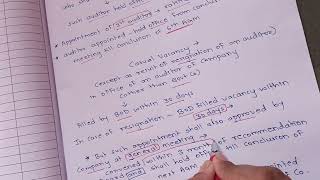 such auditor held office
• Appointment of 1st auditor →
• auditor appointed - hold office from conclusion
meeting till conclusion of 6th AGM
Casual Vacancy →
(except as result of resignation of an auditor)
in office of an auditor of company
(other than Govt Co)
Filled by BOD within 30 days
In case of resignation - BOD filled vacancy within
30 days →
• But such appointment shall also approved by
company at general meeting →
convened within 3 months of recommendation
shall hold office till conclusion of
next
appointed